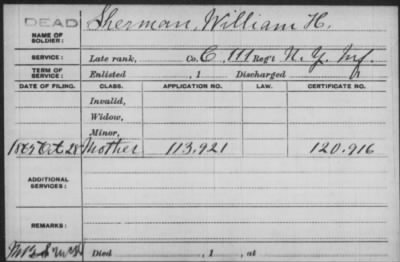 DEAD
NAME OF SOLDIER: Sherman, William H.
SERVICE: Late rank, Co. C, 111 Reg't N. Y. Inf.
TERM OF SERVICE: Enlisted , 1 Discharged , 1
DATE OF FILING. CLASS. APPLICATION NO. LAW. CERTIFICATE NO.
Invalid,
Widow,
Minor,
Oct 28 Mother 113,921 120,916
ADDITIONAL SERVICES:
REMARKS:
Died , 1 , at